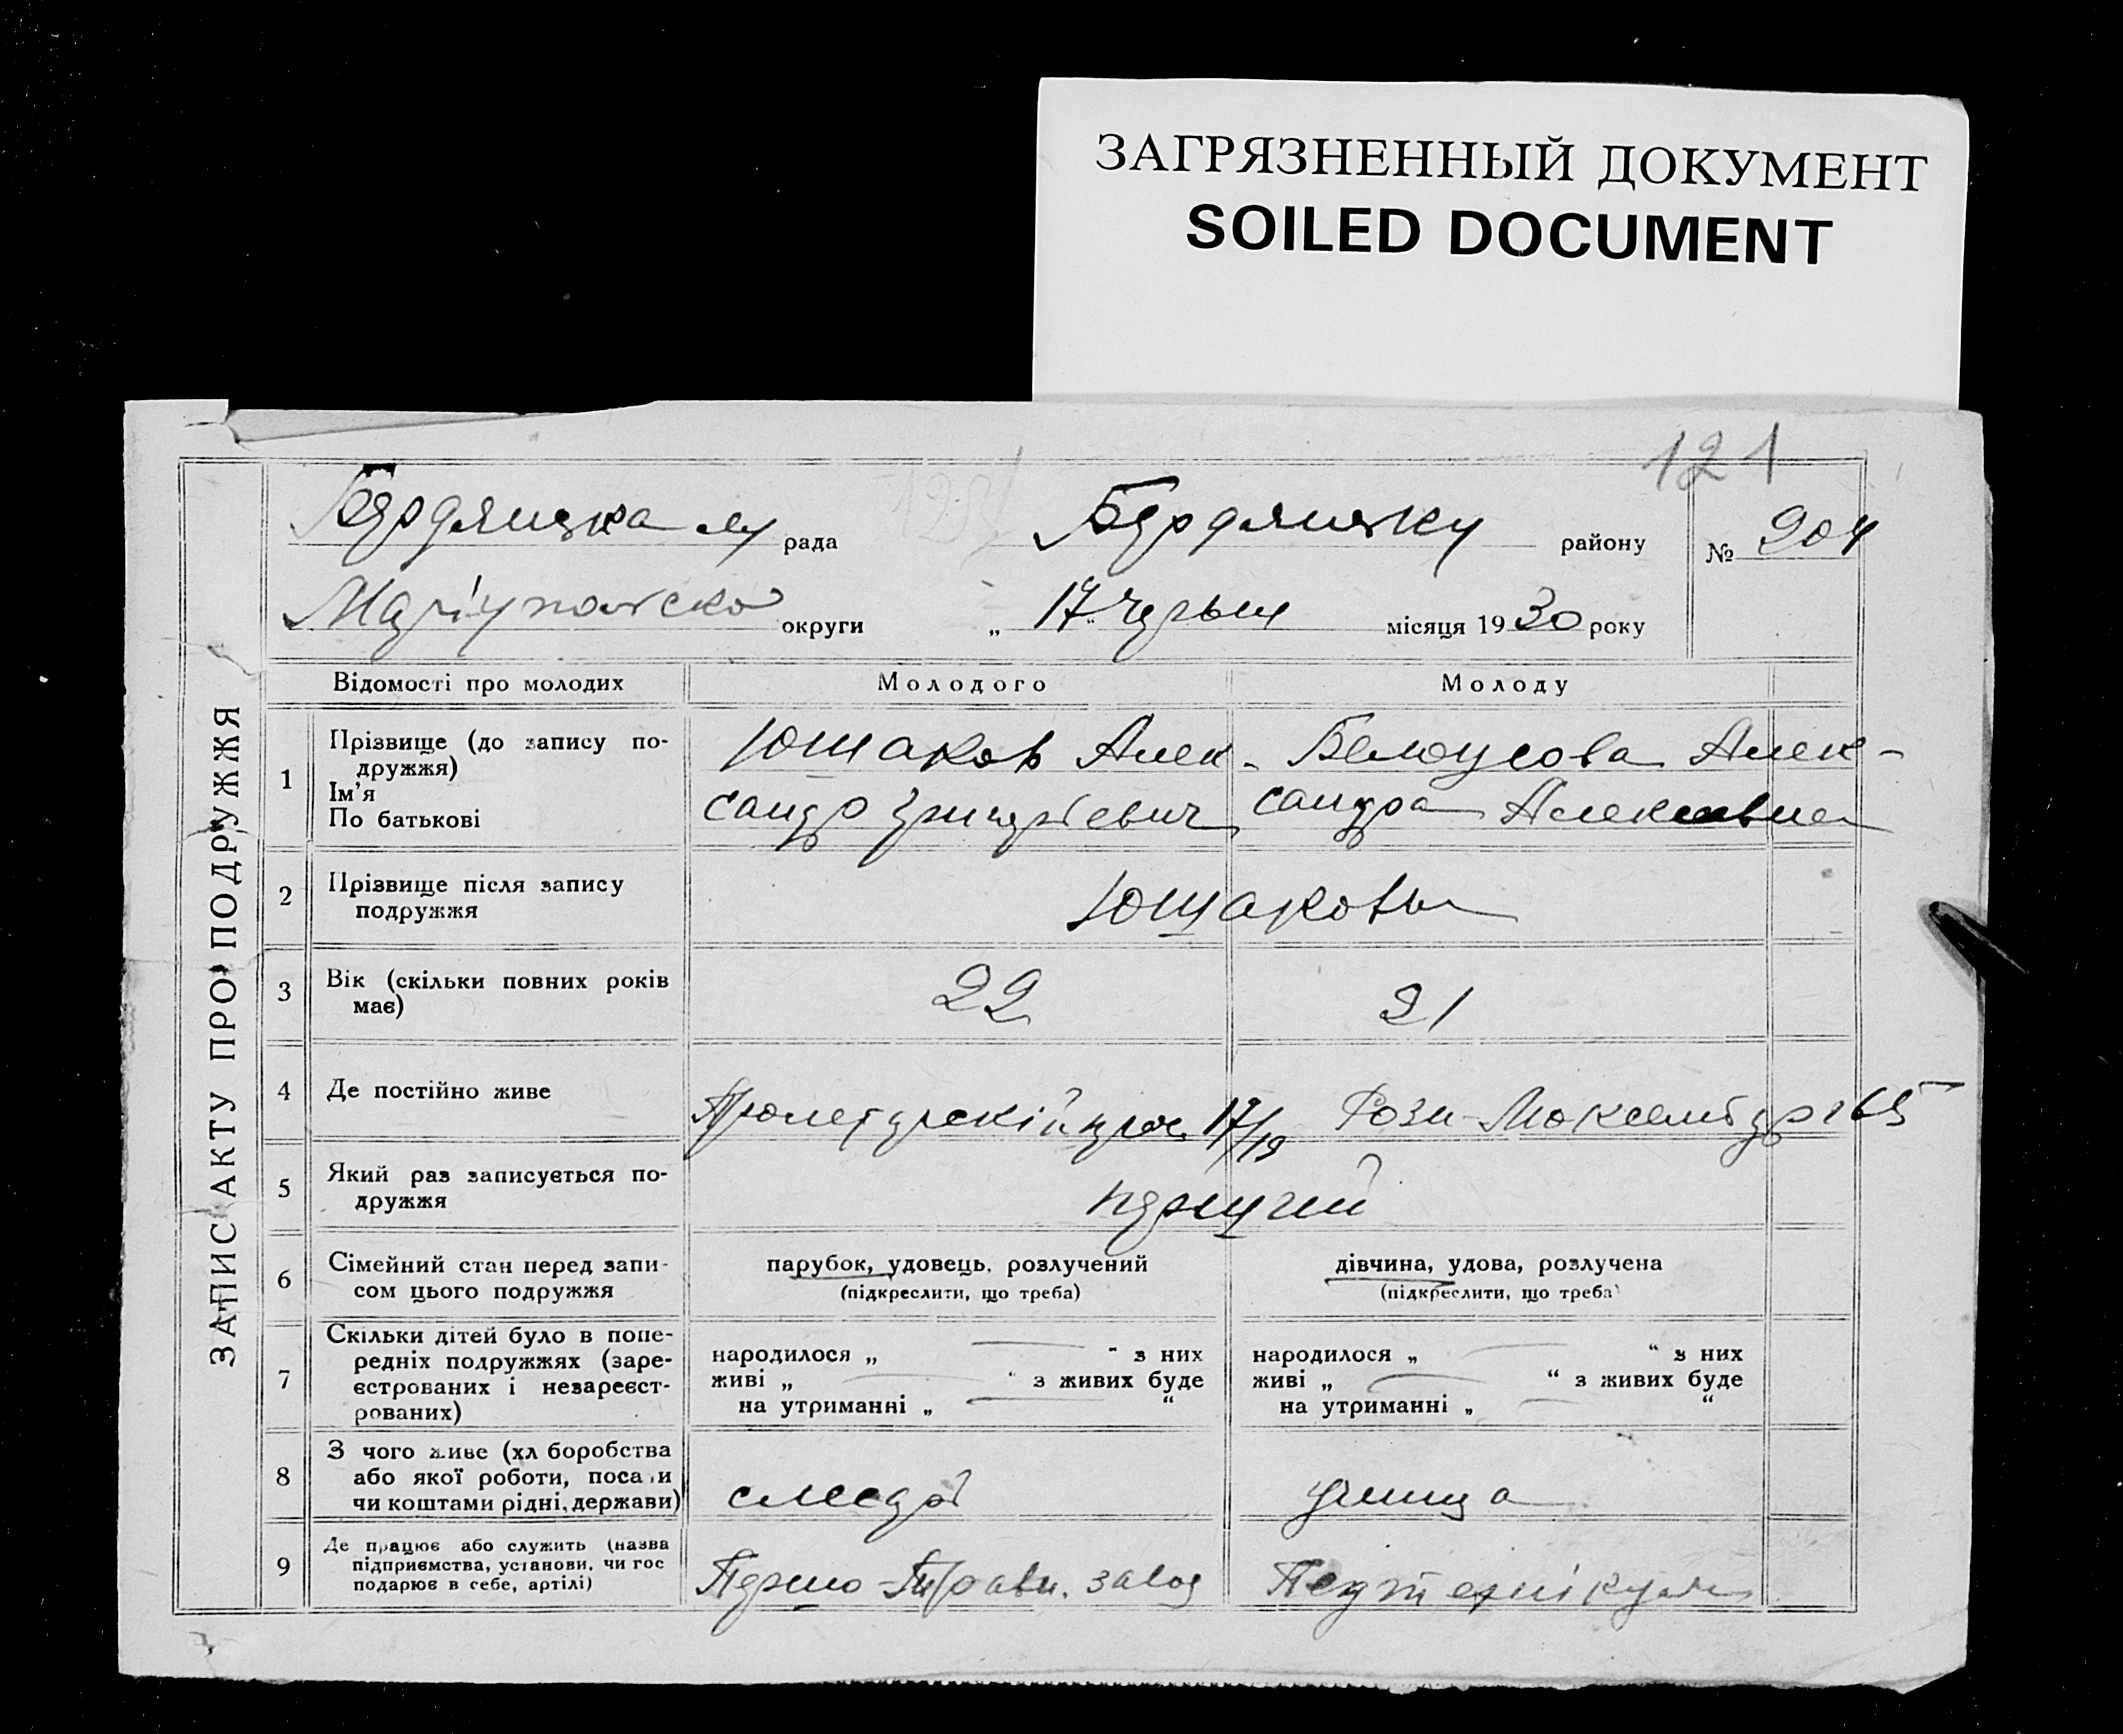 ЗАГРЯЗНЕННЫЙ ДОКУМЕНТ
SOILED DOCUMENT
121
Бердянська м рада Бердянську району № 204
Маріупольско округи „ 17 “ червня місяця 1930 року
ЗАПИС АКТУ ПРО ПОДРУЖЖЯ
Відомості про молодих Молодого Молоду
1 Прізвище (до запису по-
дружжя)
Ім'я
По батькові
Юшаков Алек-
сандр Григорієвич
Белоусова Алек-
сандра Алексевна
2 Прізвище після запису
подружжя
Юшаковы
3 Вік (скільки повних років
має)
22 21
4 Де постійно живе
17/19 Рози 65
5 Який раз записується по-
дружжя
перший
6 Сімейний стан перед запи-
сом цього подружжя
парубок, удовець, розлучений
(підкреслити, що треба)
дівчина, удова, розлучена
(підкреслити, що треба)
7 Скільки дітей було в попе-
редніх подружжях (заре-
єстрованих і незареєст-
рованих)
народилося „ “ з них
живі „ “ з живих буде
на утриманні „ “
народилося „ “ з них
живі „ “ з живих буде
на утриманні „ “
8 З чого живе (хл боробства
або якої роботи, поса и
чи коштами рідні, держави)
слюсар
учениця
9 Де працює або служить (назва
підприємства, установи, чи гос
подарює в себе, артілі)
Першо-Травн. завод
Педтехнікум